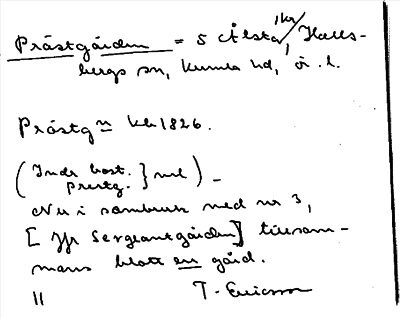 Prästgården = 5 Ålsta, 1 kr/ Halls-
bergs sn, Kumla hd, ö. l.
Prästgn kb 1826.
(Indr bost. prestg. } mtl) –
Nu i sambruk med nr 3,
[jfr Sergeantgården] tillsam-
mans blott en gård.
" T. Ericsson